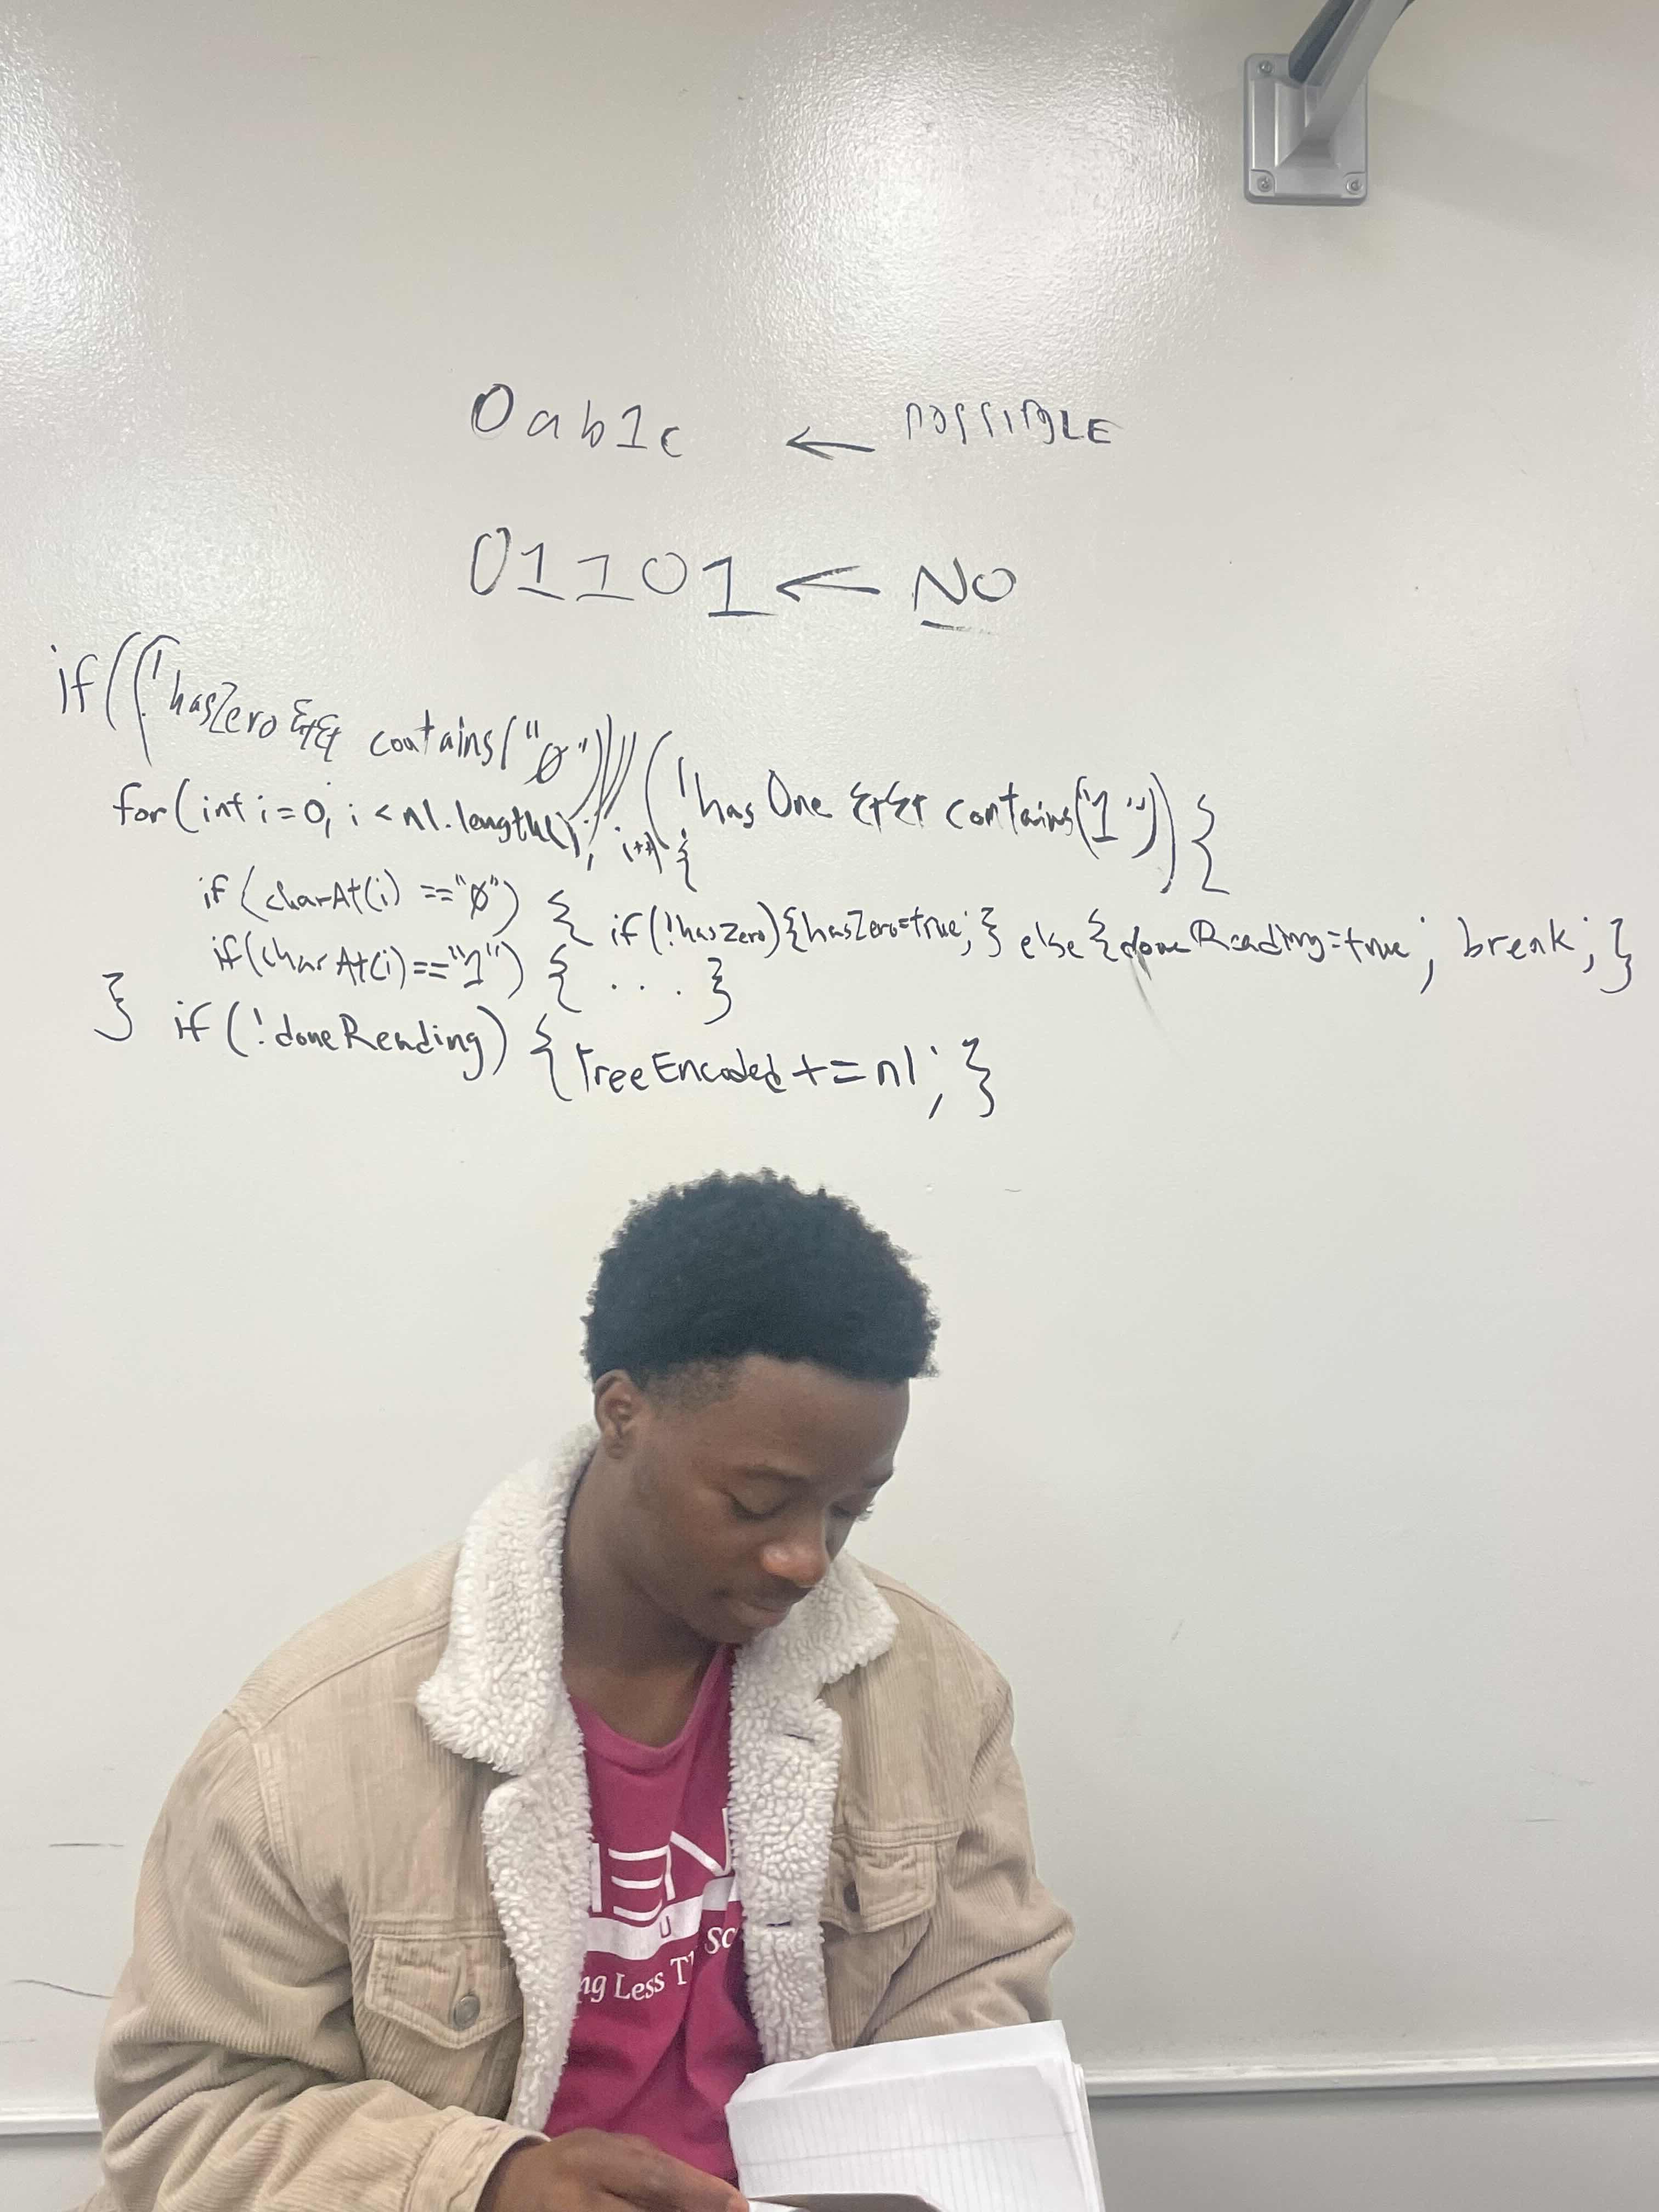 0ab1c ← POSSIBLE
01101 ← NO
if((!hasZero && contains("0")) || (!hasOne && contains("1")) {
for(int i=0; i<nl.length(); i++) {
if (charAt(i) =="0") { if(!hasZero){hasZero=true;} else{doneReading=true; break;}
if(charAt(i)=="1") { . . . }
} if (!doneReading) {TreeEncoded += nl; }
U
Sc
ng Less T